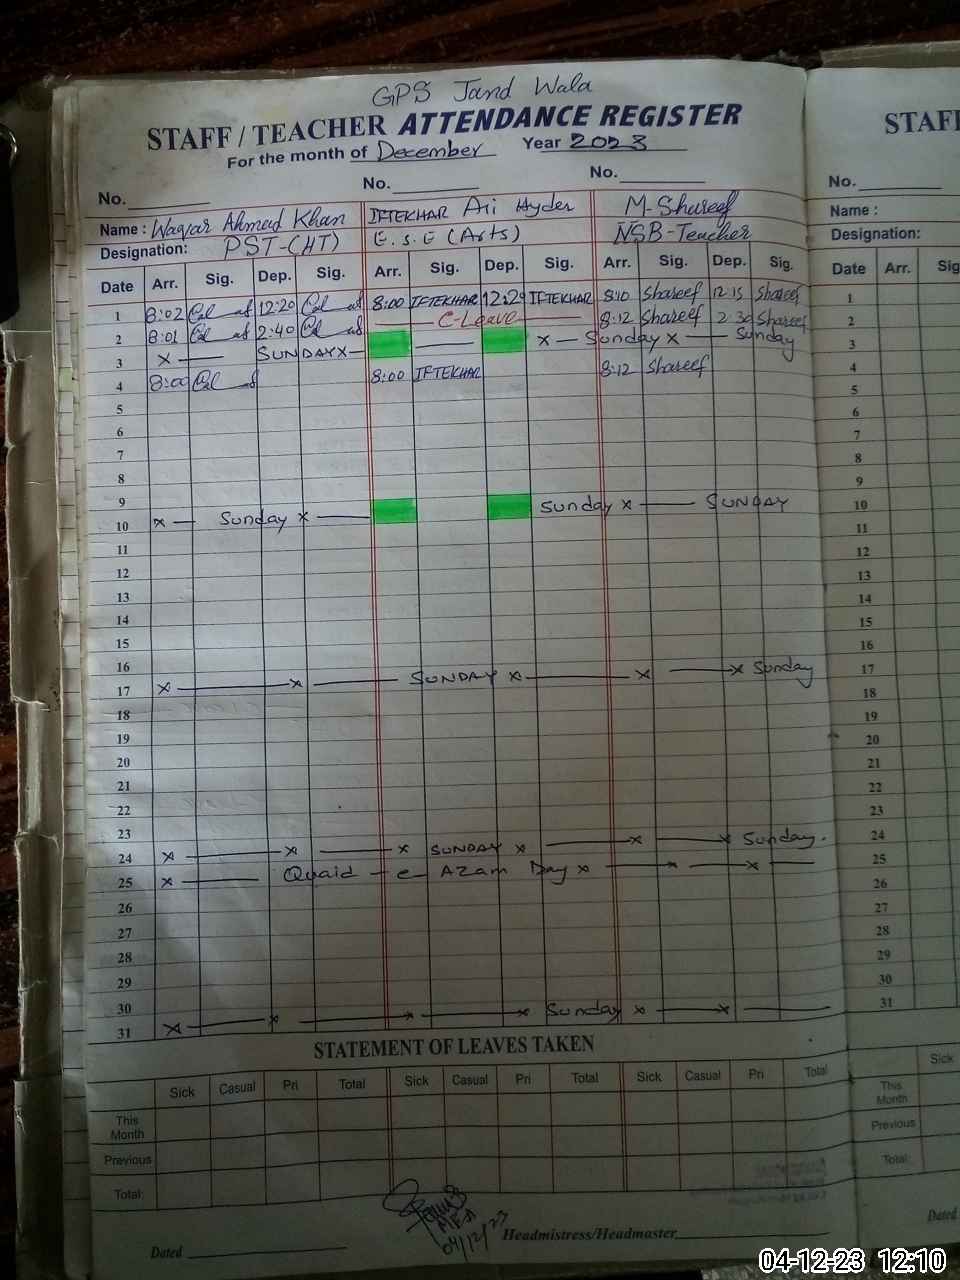 GPS Jand Wala
STAFF / TEACHER ATTENDANCE REGISTER
For the month of December Year 2023
No. No. No.
Name : Waqar Ahmad Khan IFTEKHAR Ali Hyder M-Shareef
Designation: PST-(HT) E.S.E (Arts) NSB-Teacher
Date Arr. Sig. Dep. Sig. Arr. Sig. Dep. Sig. Arr. Sig. Dep. Sig.
1 8:02 12:20 8:00 IFTEKHAR 12:20 IFTEKHAR 8:10 Shareef 12:15 Shareef
2 8:01 2:40 C-Leave 8:12 Shareef 2:30 Shareef
3 x — SUNDAY x — — x — Sunday x — Sunday
4 8:00 8:00 IFTEKHAR 8:12 Shareef
5
6
7
8
9
10 x — Sunday x — Sunday x — SUNDAY
11
12
13
14
15
16
17 x — x — SUNDAY x — x — x Sunday
18
19
20
21
22
23
24 x — x — x SUNDAY x — x — x Sunday.
25 x — Quaid-e-Azam Day x — x — x —
26
27
28
29
30
31 x — x — x — x Sunday x — x —
STATEMENT OF LEAVES TAKEN
Sick Casual Pri Total Sick Casual Pri Total Sick Casual Pri Total
This Month
Previous
Total:
MEA
04/12/23
Headmistress/Headmaster
Dated
STAF
No.
Name :
Designation:
Date Arr. Sig
1
2
3
4
5
6
7
8
9
10
11
12
13
14
15
16
17
18
19
20
21
22
23
24
25
26
27
28
29
30
31
Sick
This Month
Previous
Total:
Dated
04-12-23 12:10